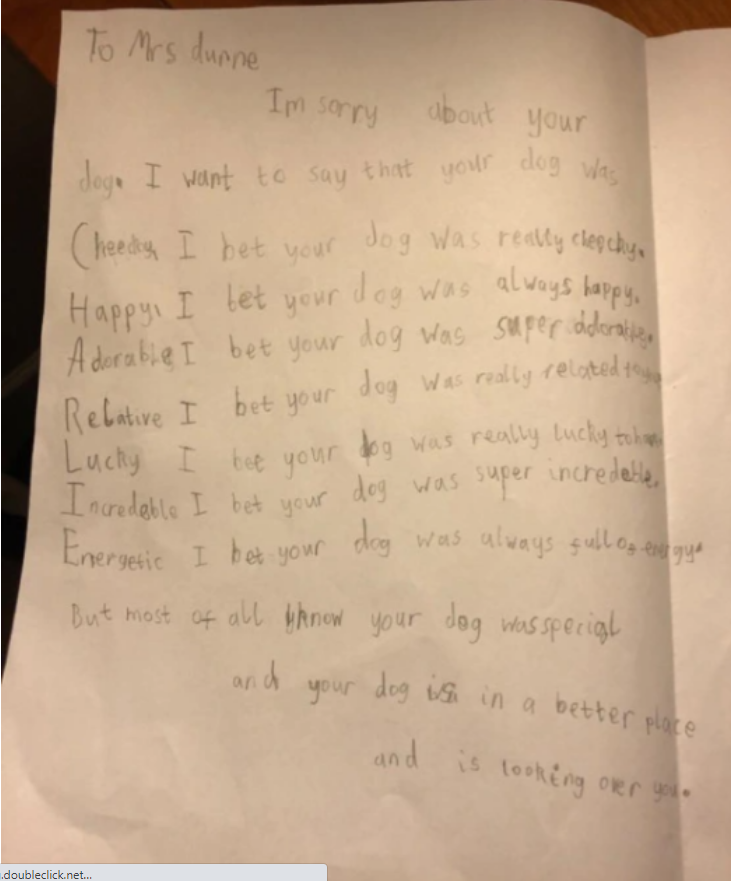 To Mrs dunne
Im sorry about your
dog. I want to say that your dog was
Cheeky, I bet your dog was really cheecky.
Happy, I bet your dog was always happy.
Adorable I bet your dog was super adorable.
Relative I bet your dog was really related to
Lucky I bet your dog was really lucky to
Incredeble I bet your dog was super incredeble.
Energetic I bet your dog was always full of energy.
But most of all know your dog was special
and your dog is in a better place
and is looking over you.
.doubleclick.net...